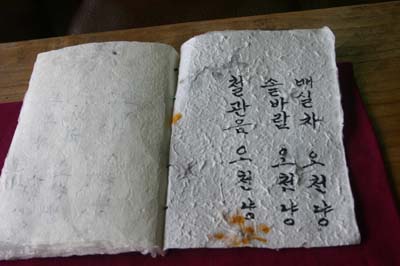 매실차 오천냥
솔바람 오천냥
철관음 오천냥